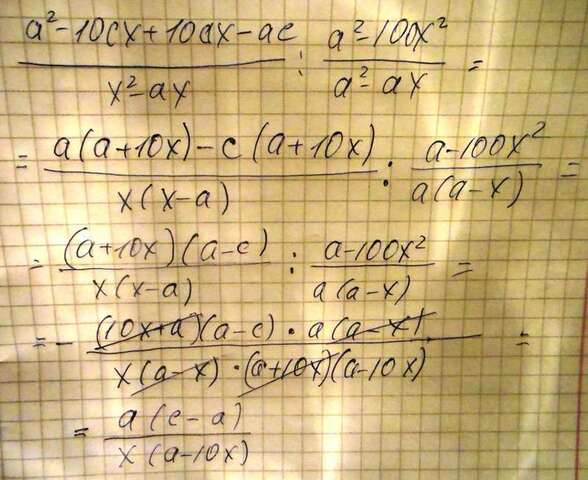 (a²-10cx+10ax-ac)/(x²-ax) : (a²-100x²)/(a²-ax) =
= (a(a+10x)-c(a+10x))/(x(x-a)) : (a-100x²)/(a(a-x)) =
= ((a+10x)(a-c))/(x(x-a)) : (a-100x²)/(a(a-x)) =
= - ((10x+a)(a-c)·a(a-x))/(x(a-x)·(a+10x)(a-10x)) =
= (a(c-a))/(x(a-10x))